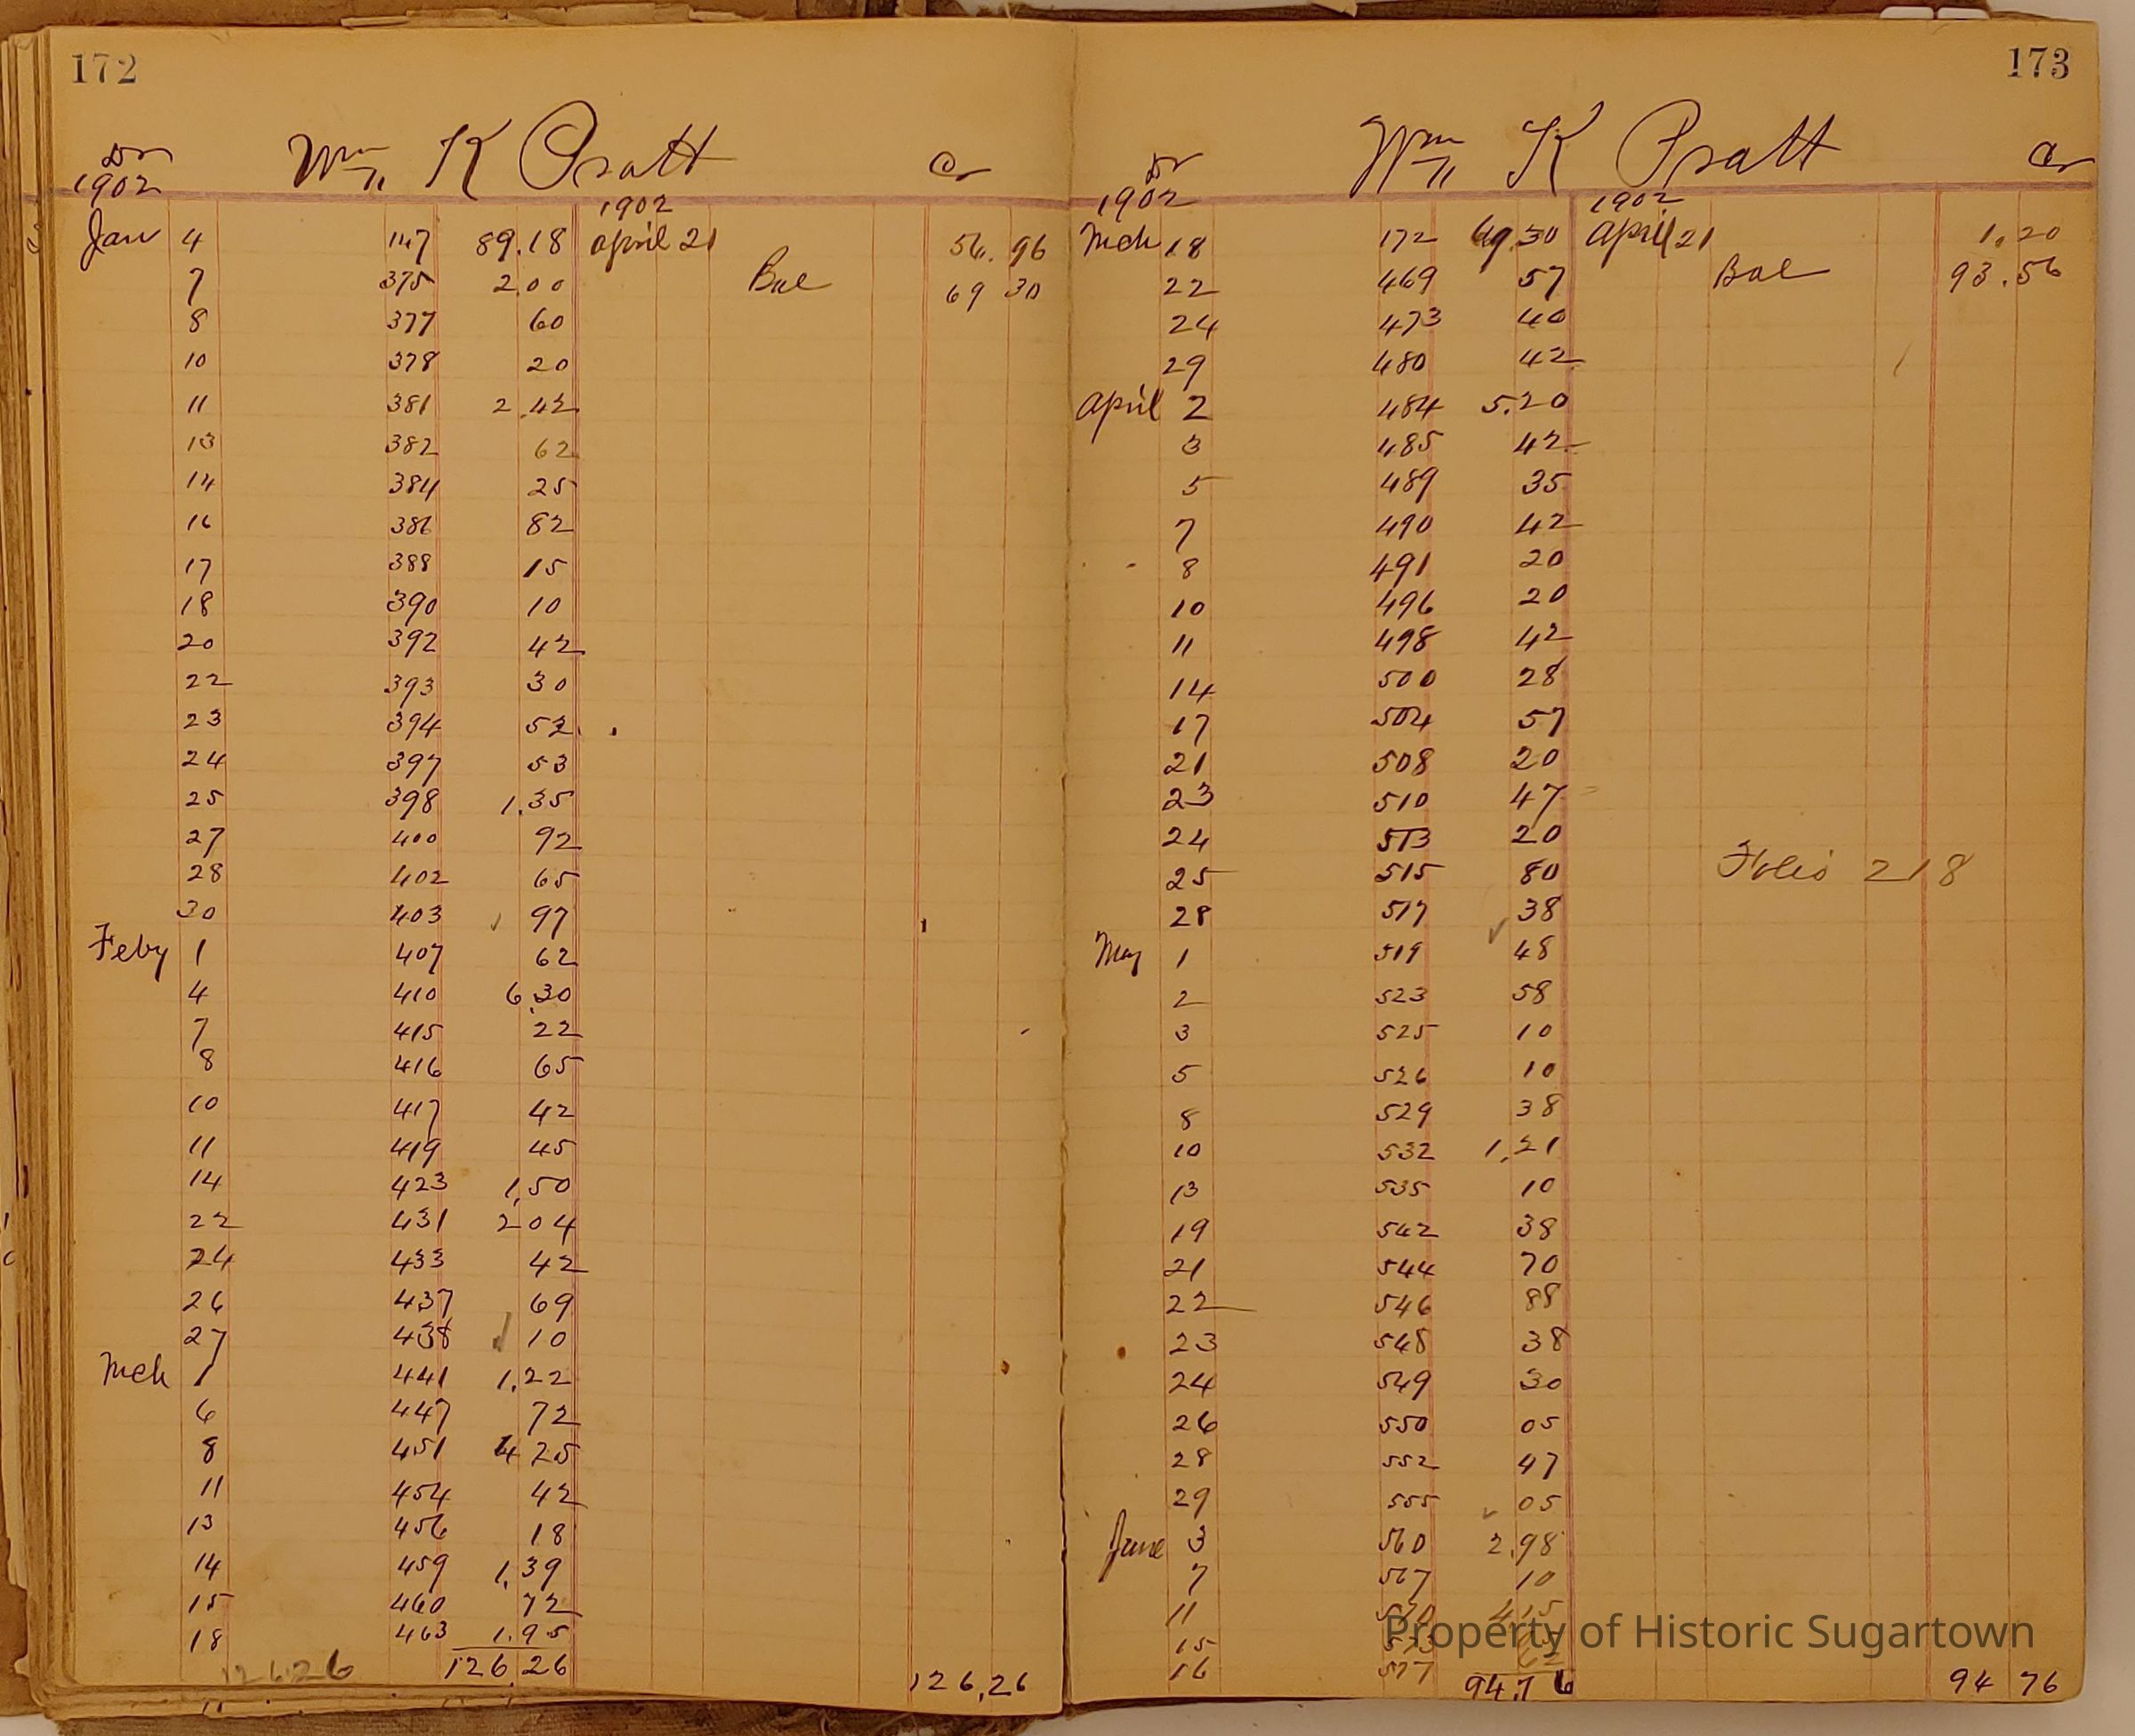 172
Dr Wm K Pratt Cr
1902 1902
Jan 4 147 89.18 April 21 56.96
7 375 2.00 Bal 69 30
8 377 60
10 378 20
11 381 2.42
13 382 62
14 384 25
16 386 82
17 388 15
18 390 10
20 392 42
22 393 30
23 394 52
24 397 53
25 398 1.35
27 400 92
28 402 65
30 403 97
Feby 1 407 62
4 410 6.30
7 415 22
8 416 65
10 417 42
11 419 45
14 423 1.50
22 431 2 04
24 433 42
26 437 69
27 438 10
Mch 1 441 1.22
6 447 72
8 451 4 25
11 454 42
13 456 18
14 459 1.39
15 460 72
18 463 1.95
126.26 126 26 126.26
173
Dr Wm K Pratt Cr
1902 1902
Mch 18 172 69.30 April 21 1.20
22 469 57 Bal 93.56
24 473 40
29 480 42
April 2 484 5.20
3 485 42
5 489 35
7 490 42
8 491 20
10 496 20
11 498 42
14 500 28
17 504 57
21 508 20
23 510 47
24 513 20
25 515 80 Folio 218
28 517 38
May 1 519 48
2 523 58
3 525 10
5 526 10
8 529 38
10 532 1.21
13 535 10
19 542 38
21 544 70
22 546 88
23 548 38
24 549 30
26 550 05
28 552 47
29 555 05
June 3 560 2.98
7 567 10
11 570 4 15
15 573
16 577
94.76 94 76
Property of Historic Sugartown